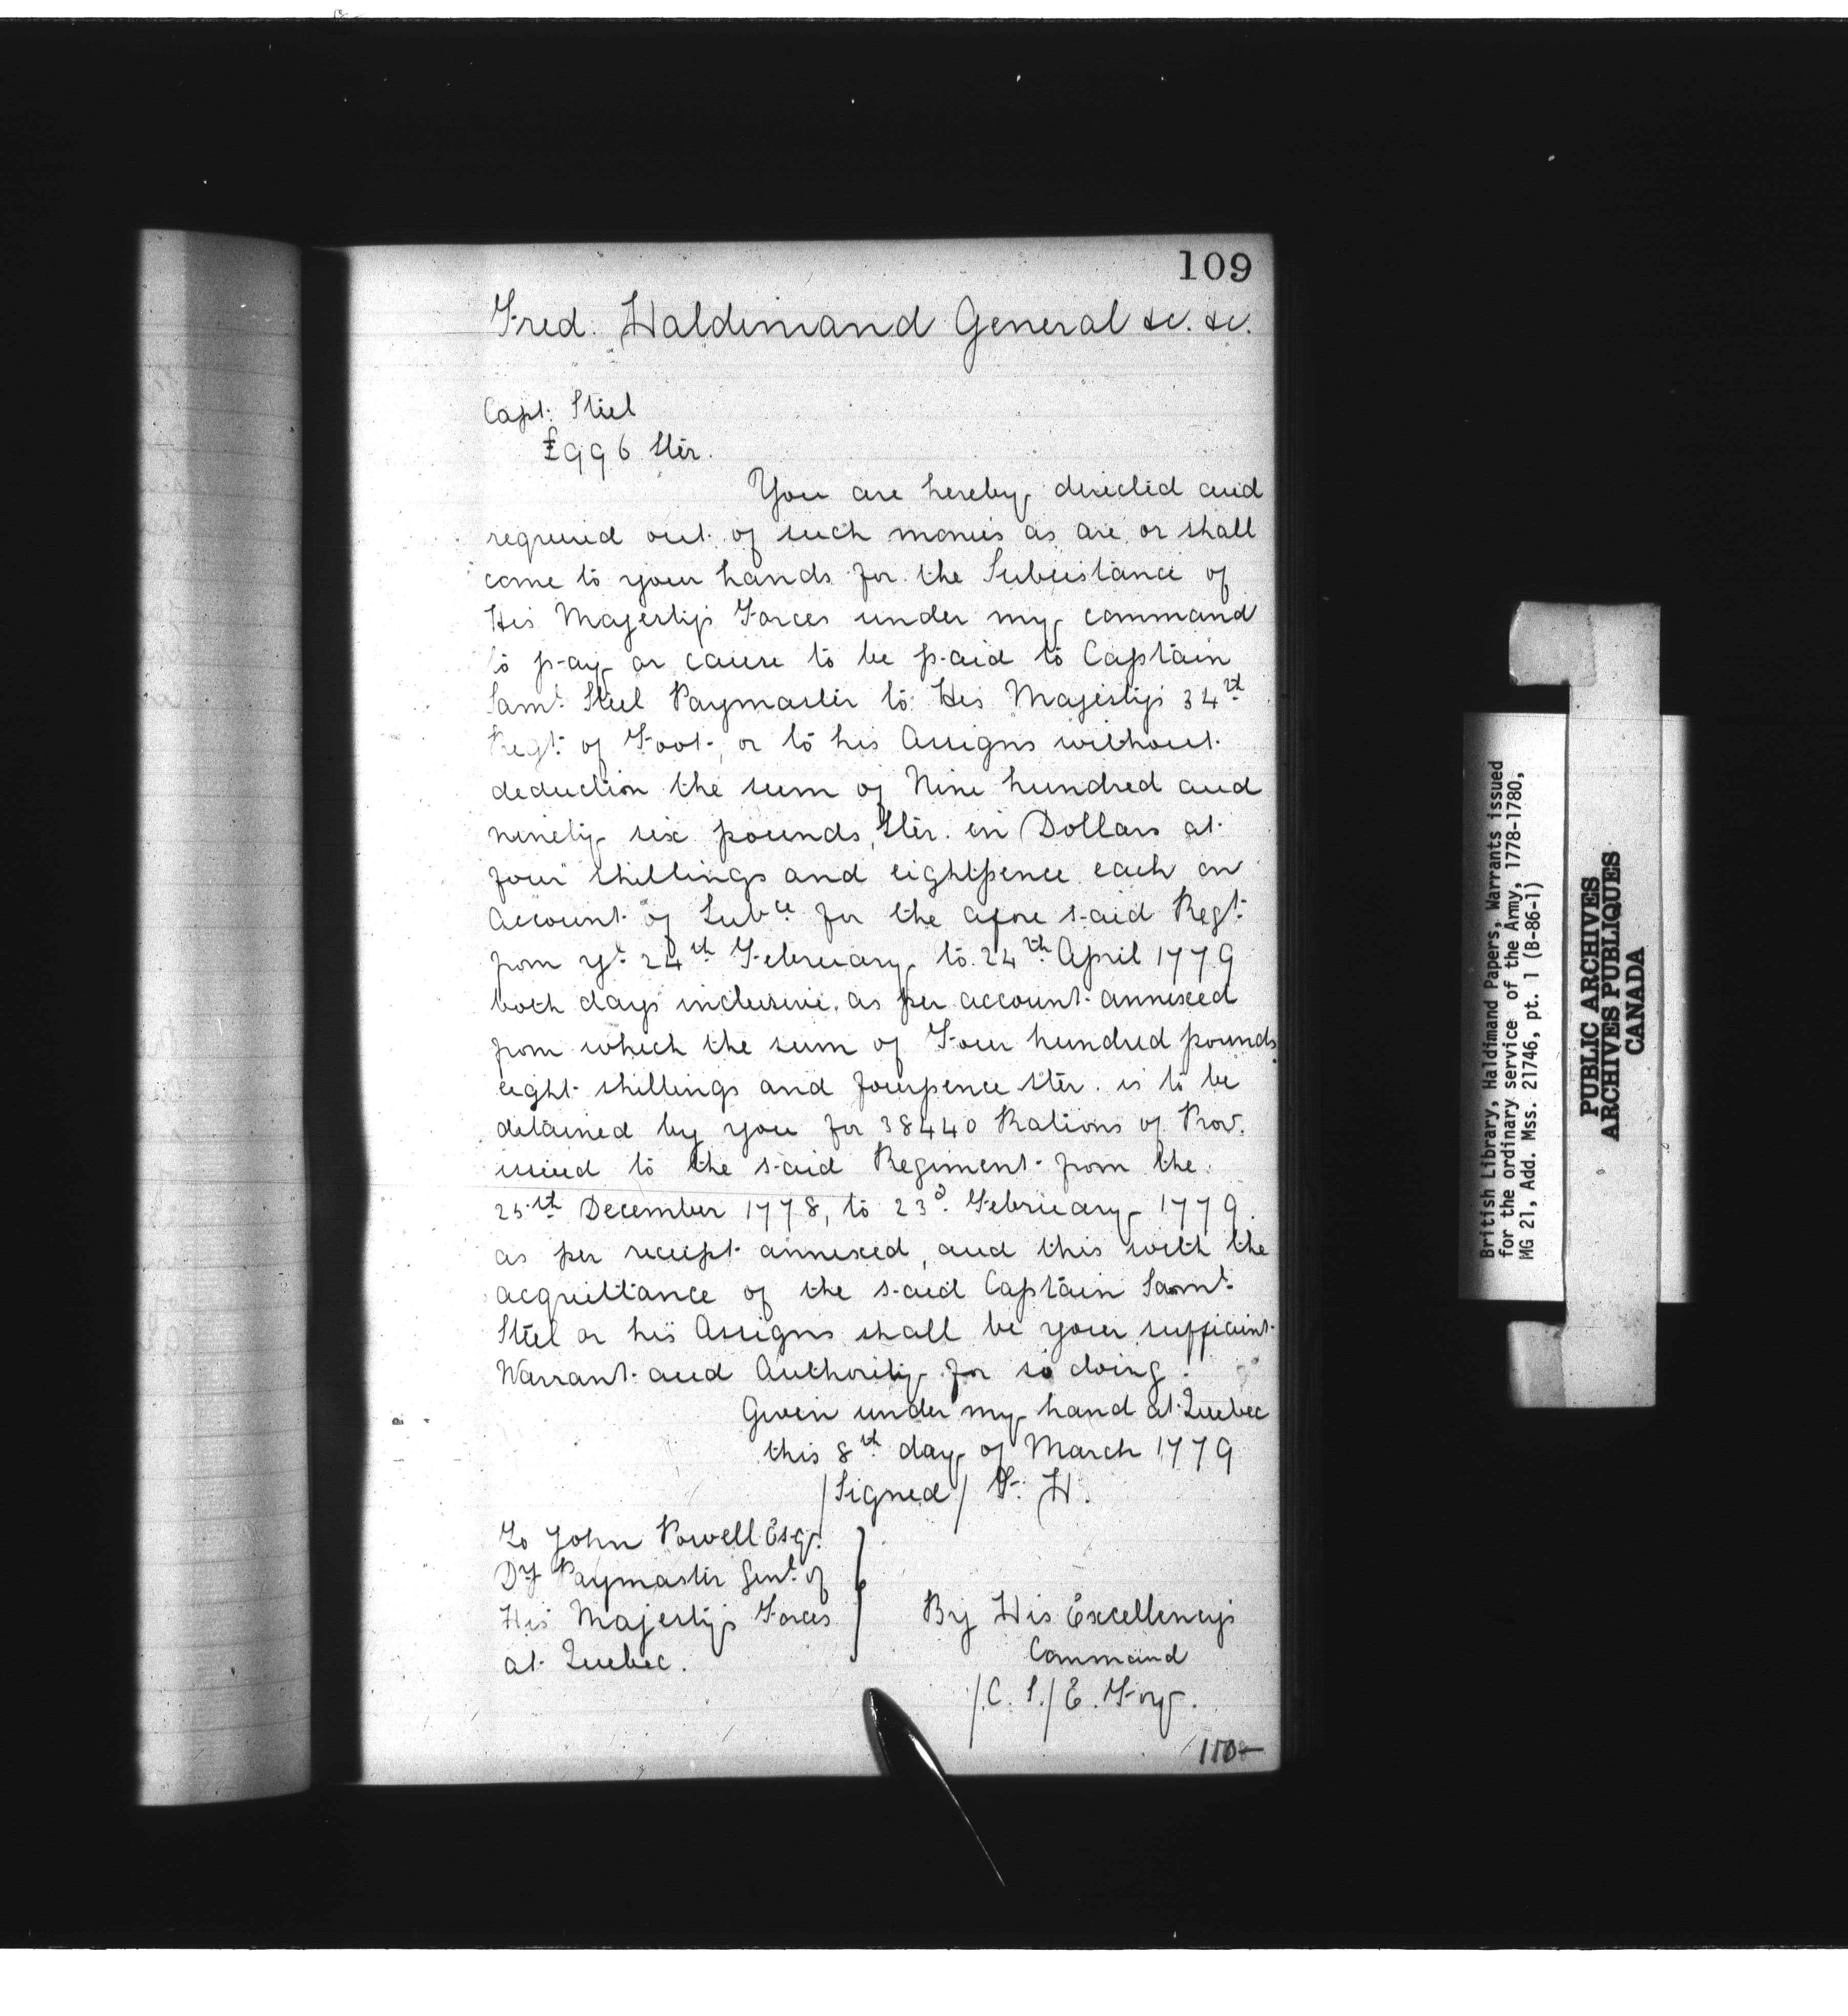 109
Fred. Haldimand General &c. &c.
Capt. Steel
£996 Ster.
You are hereby directed and
required out of such monies as are or shall
come to your hands for the Subsistance of
His Majesty's Forces under my command
to pay or cause to be paid to Captain
Saml. Steel Paymaster to His Majesty's 34th
Regt. of Foot, or to his Assigns without
deduction the sum of Nine hundred and
ninety six pounds, Ster. in Dollars at
four shillings and eightpence each on
Account of Subce for the afore said Regt.
from ye. 24th February to 24th April 1779
both days inclusive, as per account annexed
from which the sum of Four hundred pounds
eight shillings and fourpence ster. is to be
detained by you for 38440 Rations of Prov.
issued to the said Regiment from the
25th December 1778, to 23d. February 1779.
as per receipt annexed, and this with the
acquittance of the said Captain Saml.
Steel or his Assigns shall be your sufficient
Warrant and Authority for so doing.
Given under my hand at Quebec
this 8th day of March 1779
/Signed/ F. H.
To John Powell Esqr.
Dy Paymaster Genl. of
His Majesty's Forces
at Quebec.
By His Excellency's
Command
/C. S./ E. Foy.
110
British Library, Haldimand Papers, Warrants issued
for the ordinary service of the Army, 1778-1780,
MG 21, Add. Mss. 21746, pt. 1 (B-86-1)
PUBLIC ARCHIVES
ARCHIVES PUBLIQUES
CANADA